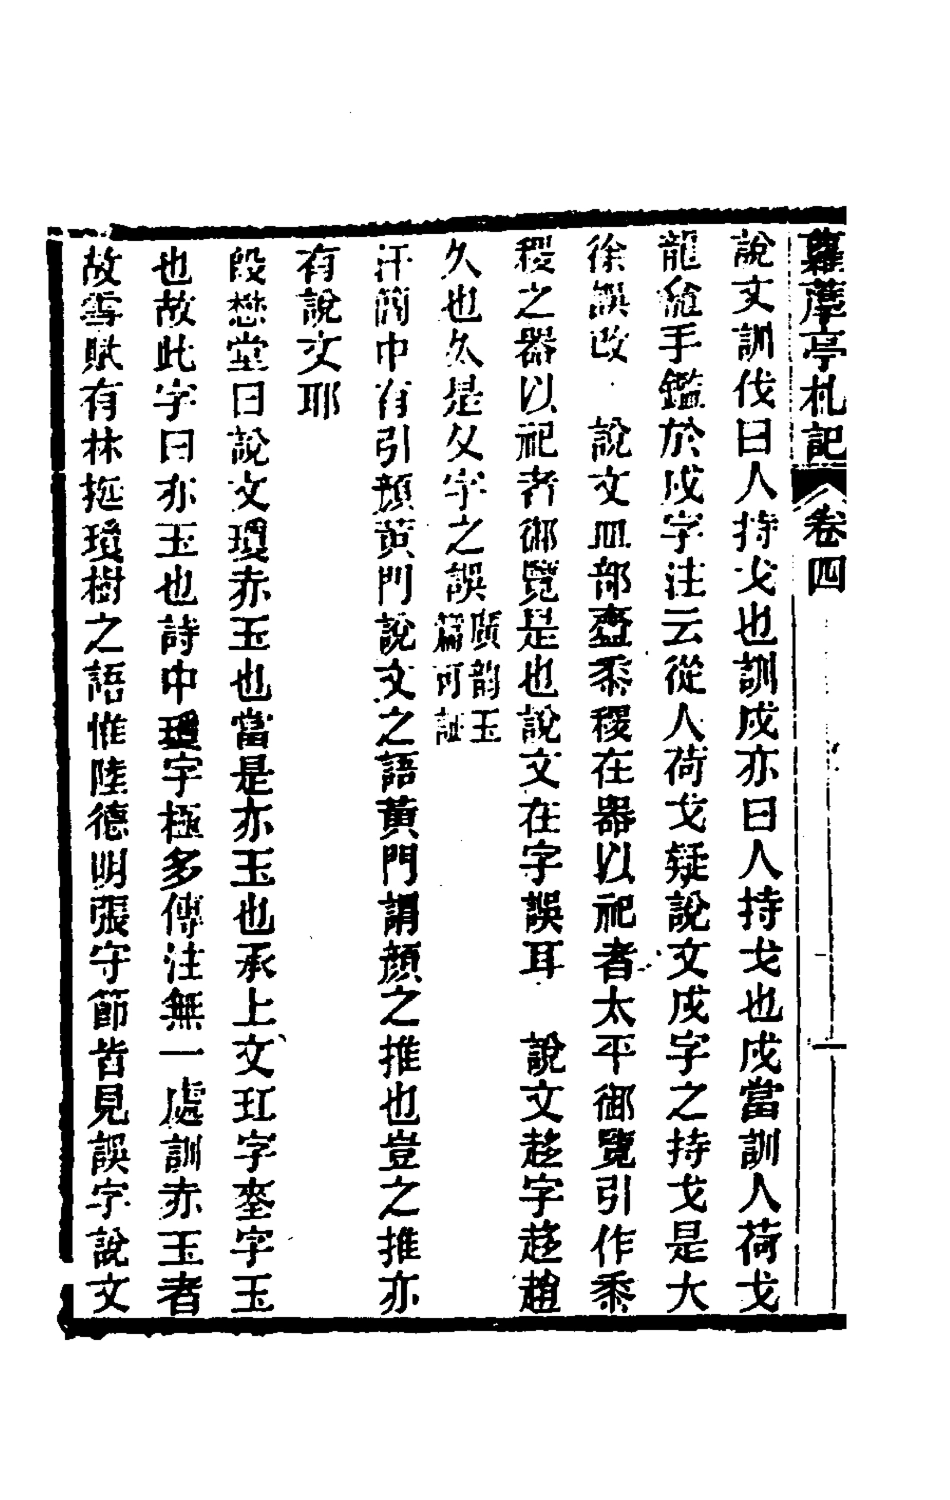 蘿藦亭札記 卷四 一
說文訓伐曰人持戈也訓戍亦曰人持戈也戍當訓人荷戈
龍龕手鑑於戍字注云從人荷戈疑說文戍字之持戈是大
徐誤改 說文皿部齍黍稷在器以祀者太平御覽引作黍
稷之器以祀者御覽是也說文在字誤耳 說文趍字趍趙
久也久是夂字之誤廣韵玉篇可証
汗簡中有引顏黄門說文之語黃門謂顏之推也豈之推亦
有說文耶
段懋堂曰說文瓊赤玉也當是亦玉也承上文玒字玊字玉
也故此字曰亦玉也詩中瓊字極多傳注無一處訓赤玉者
故雪賦有林挺瓊樹之語惟陸德明張守節皆見誤字說文